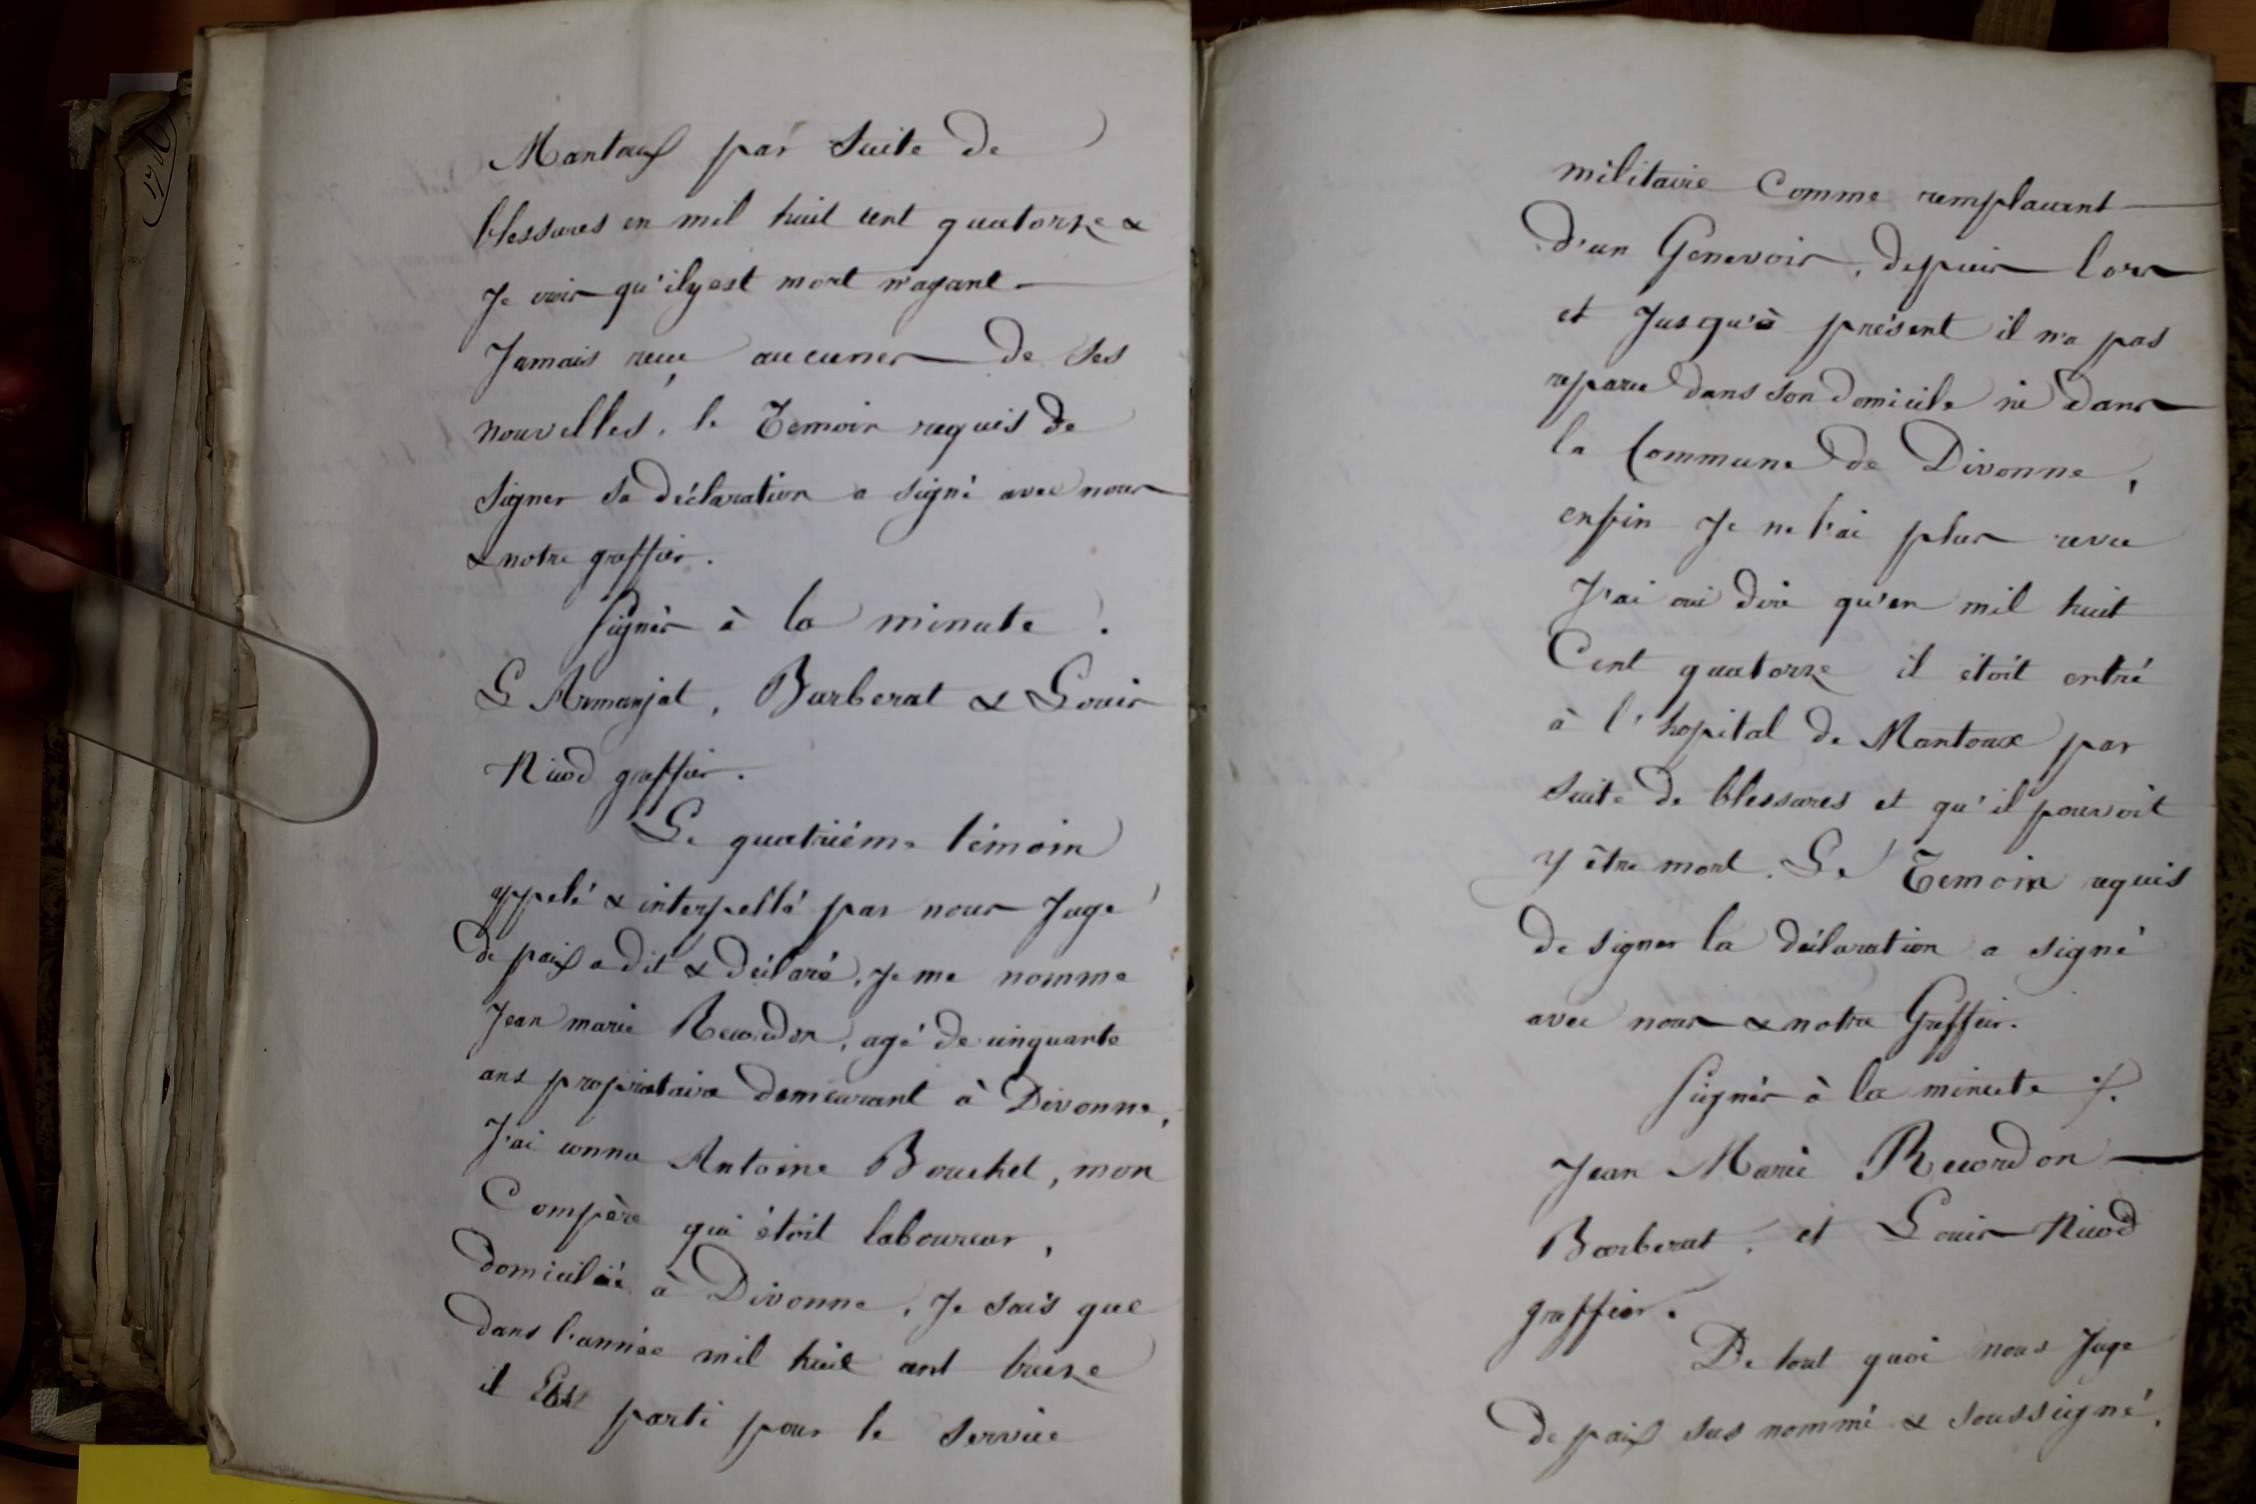 17
Mantoux par suite de
blessures en mil huit cent quatorze &
Je crois qu'il y est mort n'ayant
Jamais reçu aucunes de ses
nouvelles. le Temoin requis de
signer sa déclaration a signé avec nous
& notre greffier.
Signés à la minute.
L Armanjat, Barberat & Louis
Nicod greffier.
Le quatriéme témoin
appelé & interpellé par nous Juge
de paix a dit & déclaré, Je me nomme
Jean marie Recordon, agé de cinquante
ans propriétaire demeurant à Divonne,
J'ai connu Antoine Bouchet, mon
Compère qui étoit laboureur,
domicilié à Divonne, Je sais que
dans l'année mil huit cent treize
il Est parti pour le service
militaire Comme remplacent
d'un Genevois, depuis lors
et Jusqu'à présent il n'a pas
reparu dans son domicile ni dans
la Commune de Divonne,
enfin Je ne l'ai plus revu
J'ai oui dire qu'en mil huit
Cent quatorze il étoit entré
à l'hopital de Mantoux par
suite de blessures et qu'il pouvoit
y être mort. Le Temoin requis
de signer la déclaration a signé
avec nous & notre Greffier.
Signés à la minute /.
Jean Marie Recordon
Barberat, et Louis Nicod
greffier.
De tout quoi nous Juge
de paix sus nommé & soussigné,